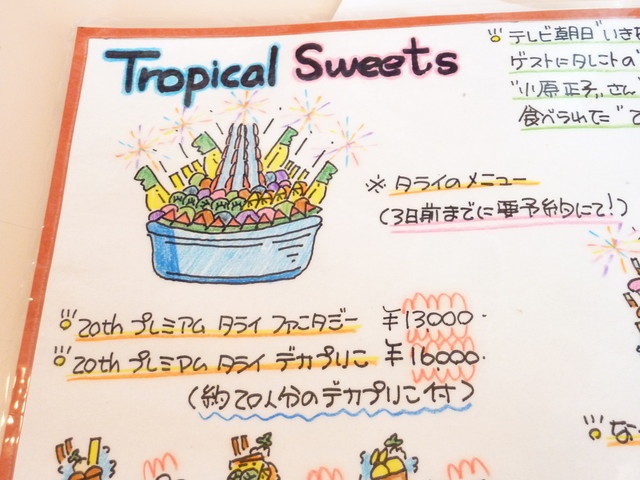 Tropical Sweets
テレビ朝日"いき
ゲストにタレントの
"小原正子さん"
食べられた"
※ タライのメニュー
(3日前までに要予約にて!)
20th プレミアム タライ ファンタジー ¥13,000-
20th プレミアム タライ デカプリン ¥16,000-
(約20人分のデカプリン付)
な